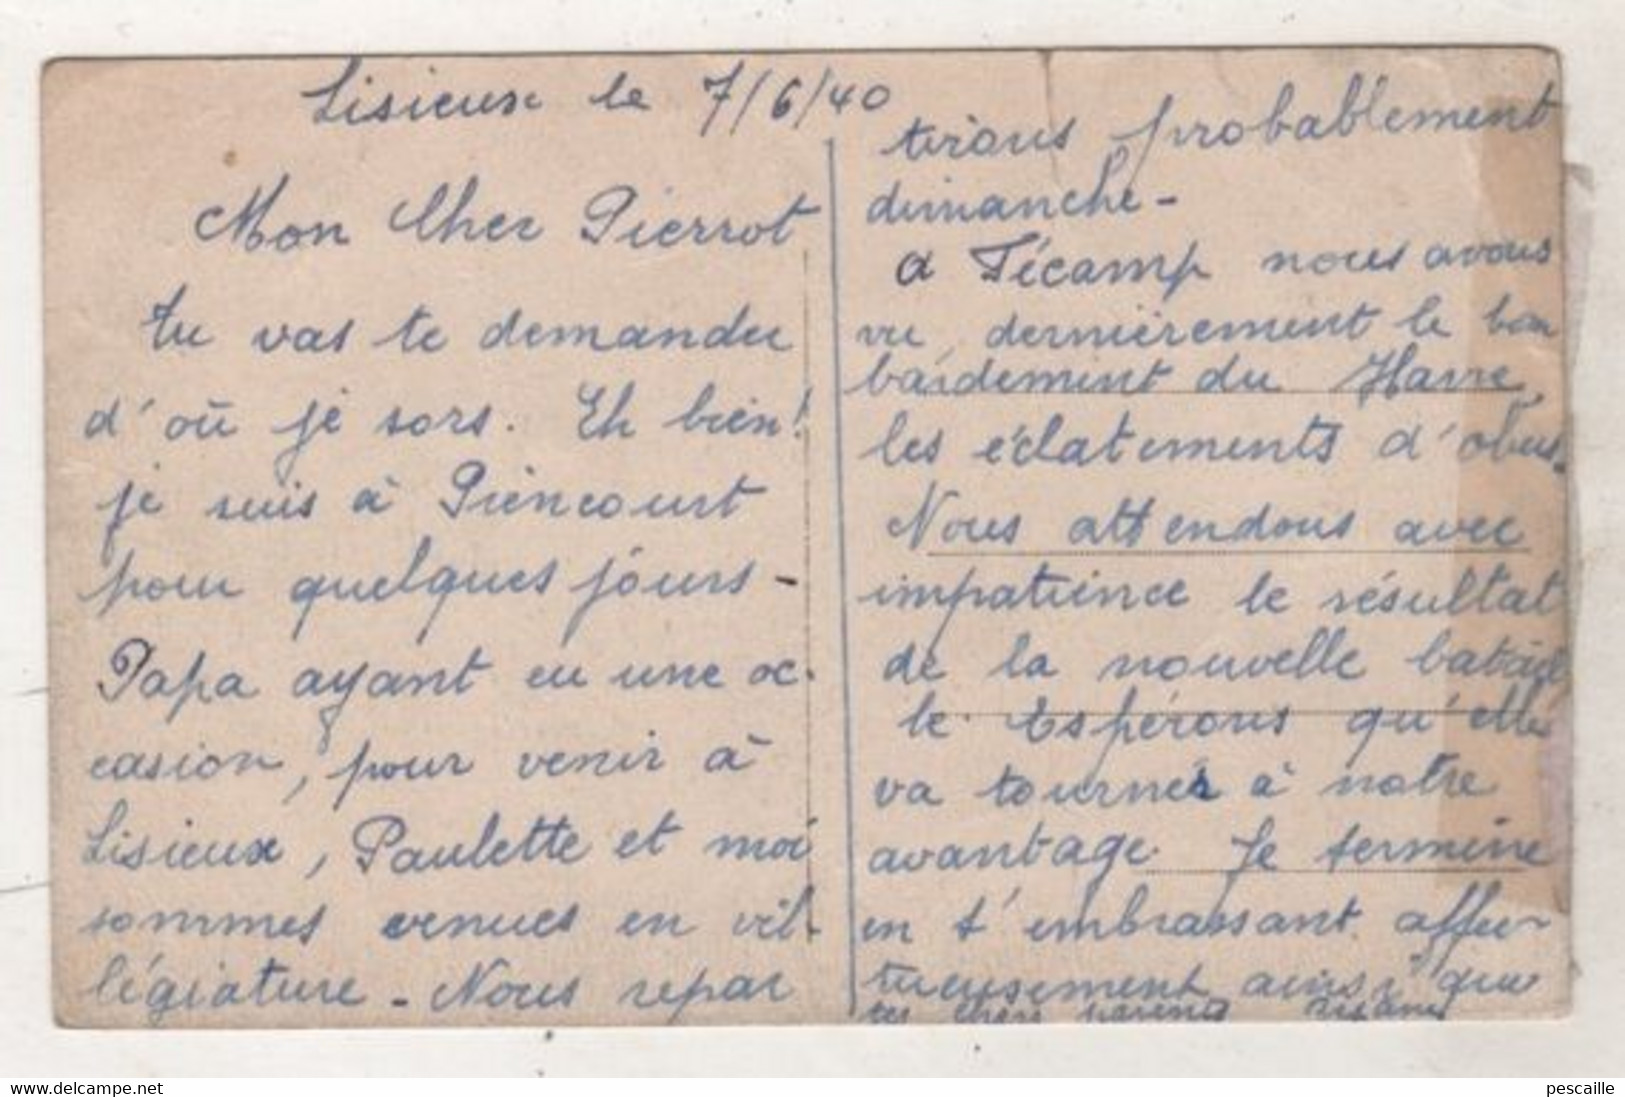 Lisieux le 7/6/40
Mon Cher Pierrot
Tu vas te demander
d'où je sors. Eh bien!
je suis à Piencourt
pour quelques jours -
Papa ayant eu une oc-
casion, pour venir à
Lisieux, Paulette et moi
sommes venues en vil-
légiature - Nous repar
tirons probablement
dimanche -
a Fécamp nous avons
vu dernièrement le bom
bardement du Havre
les éclatements d'obus.
Nous attendons avec
impatience le résultat
de la nouvelle batail
le. Espérons qu'elle
va tourner à notre
avantage. Je termine
en t'embrassant affec
tueusement ainsi que
tes chers parents
pescaille